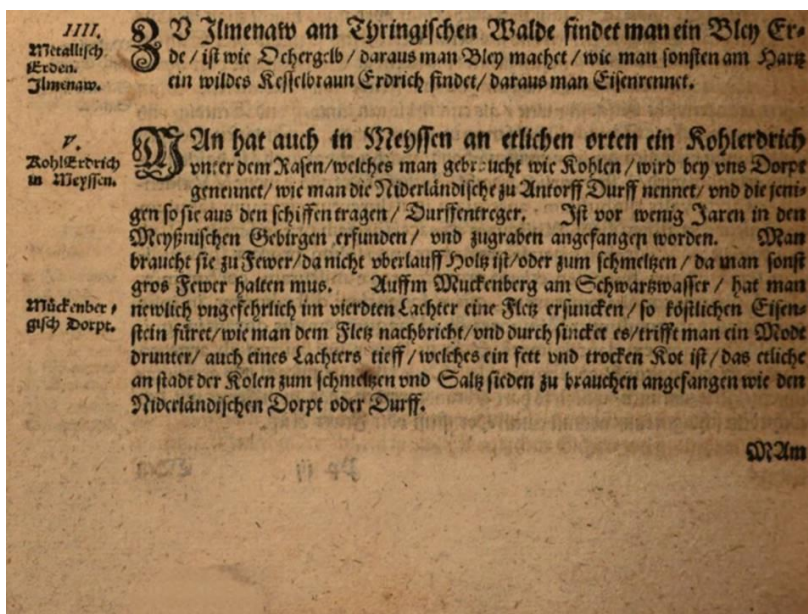 IIII.
Metallisch
Erden.
Ilmenaw.
ZU Ilmenaw am Thringischen Walde findet man ein Bley Er-
de / ist wie Ochergelb / daraus man Bley machet / wie man sonsten am Hartz
ein wildes Kesselbraun Erdrich findet / daraus man Eisenrennet.
V.
KohlErdrich
in Meyssen.
MAn hat auch in Meyssen an etlichen orten ein Kohlerdrich
vnter dem Rasen / welches man gebraucht wie Kohlen / wird bey vns Dorpt
genennet / wie man die Niderländische zu Antorff Durff nennet / vnd die jeni-
gen so sie aus den schiffen tragen / Durffentreger. Ist vor wenig Jaren in den
Meyßnischen Gebirgen erfunden / vnd zugraben angefangen worden. Man
braucht sie zu Fewer / da nicht vberlauff Holtz ist / oder zum schmeltzen / da man sonst
gros Fewer halten mus. Auffm Muckenberg am Schwartzwasser / hat man
Mückenber-
gisch Dorpt.
newlich vngefehrlich im vierdten Lachter eine Fletz ersuncken / so köstlichen Eisen-
stein füret / wie man dem Fletz nachbricht / vnd durch sincket es / trifft man ein Mode
drunter / auch eines Lachters tieff / welches ein fett vnd trocken Kot ist / das etliche
an stadt der Kolen zum schmeltzen vnd Saltz sieden zu brauchen angefangen wie den
Niderländischen Dorpt oder Durff.
MAm